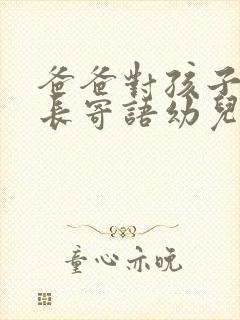 爸爸對孩子
長寄語幼兒
童心亦晚